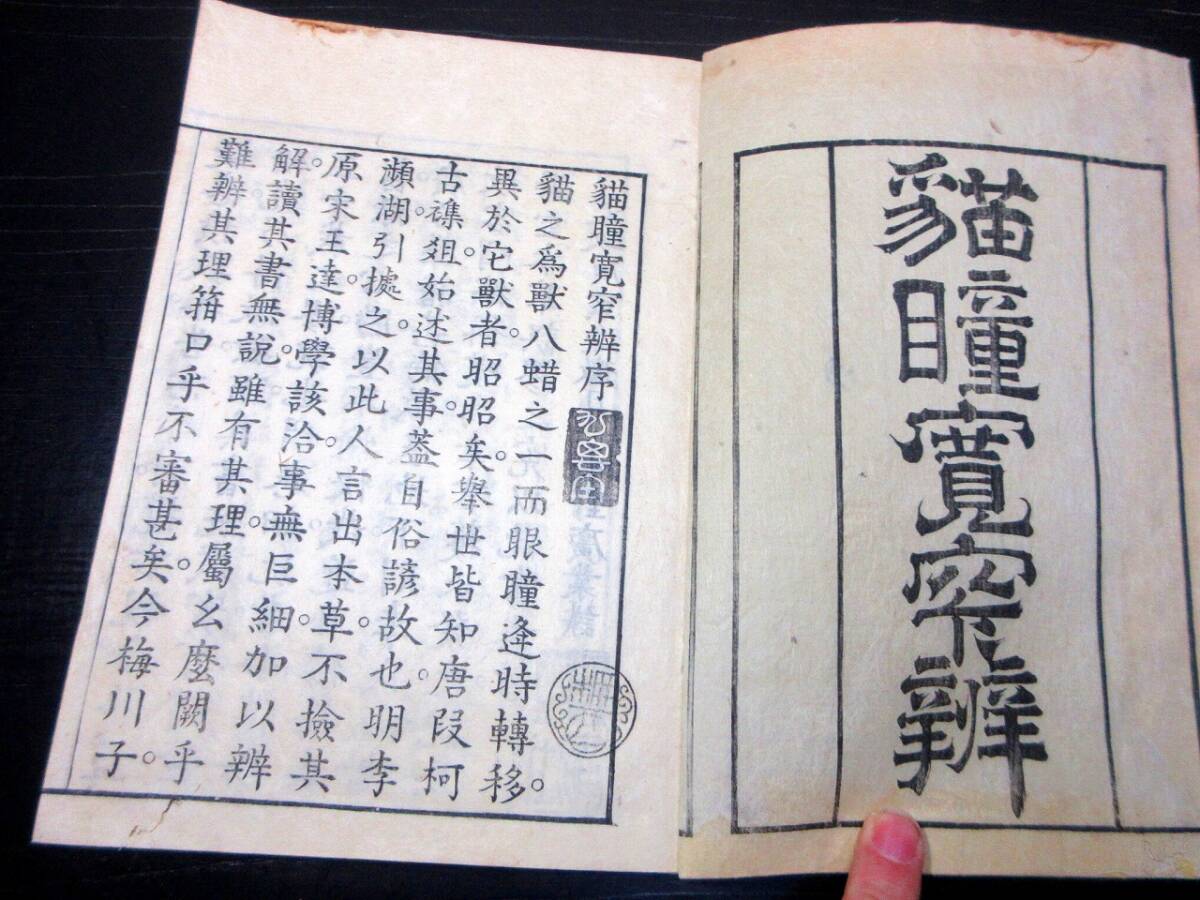 貓瞳寬窄辨
貓瞳寬窄辨序
貓之爲獸八蜡之一而眼瞳逄時轉移。
異於它獸者。昭昭矣。舉世皆知唐段柯
古襍俎。始述其事。葢自俗諺故也。明李
瀕湖。引據之。以此人言出本草。不撿其
原宋王達。博學該洽。事無巨細。加以辨
解。讀其書無說。雖有其理。屬幺麼闕乎
難辨其理箝口乎不審甚矣。今梅川子。